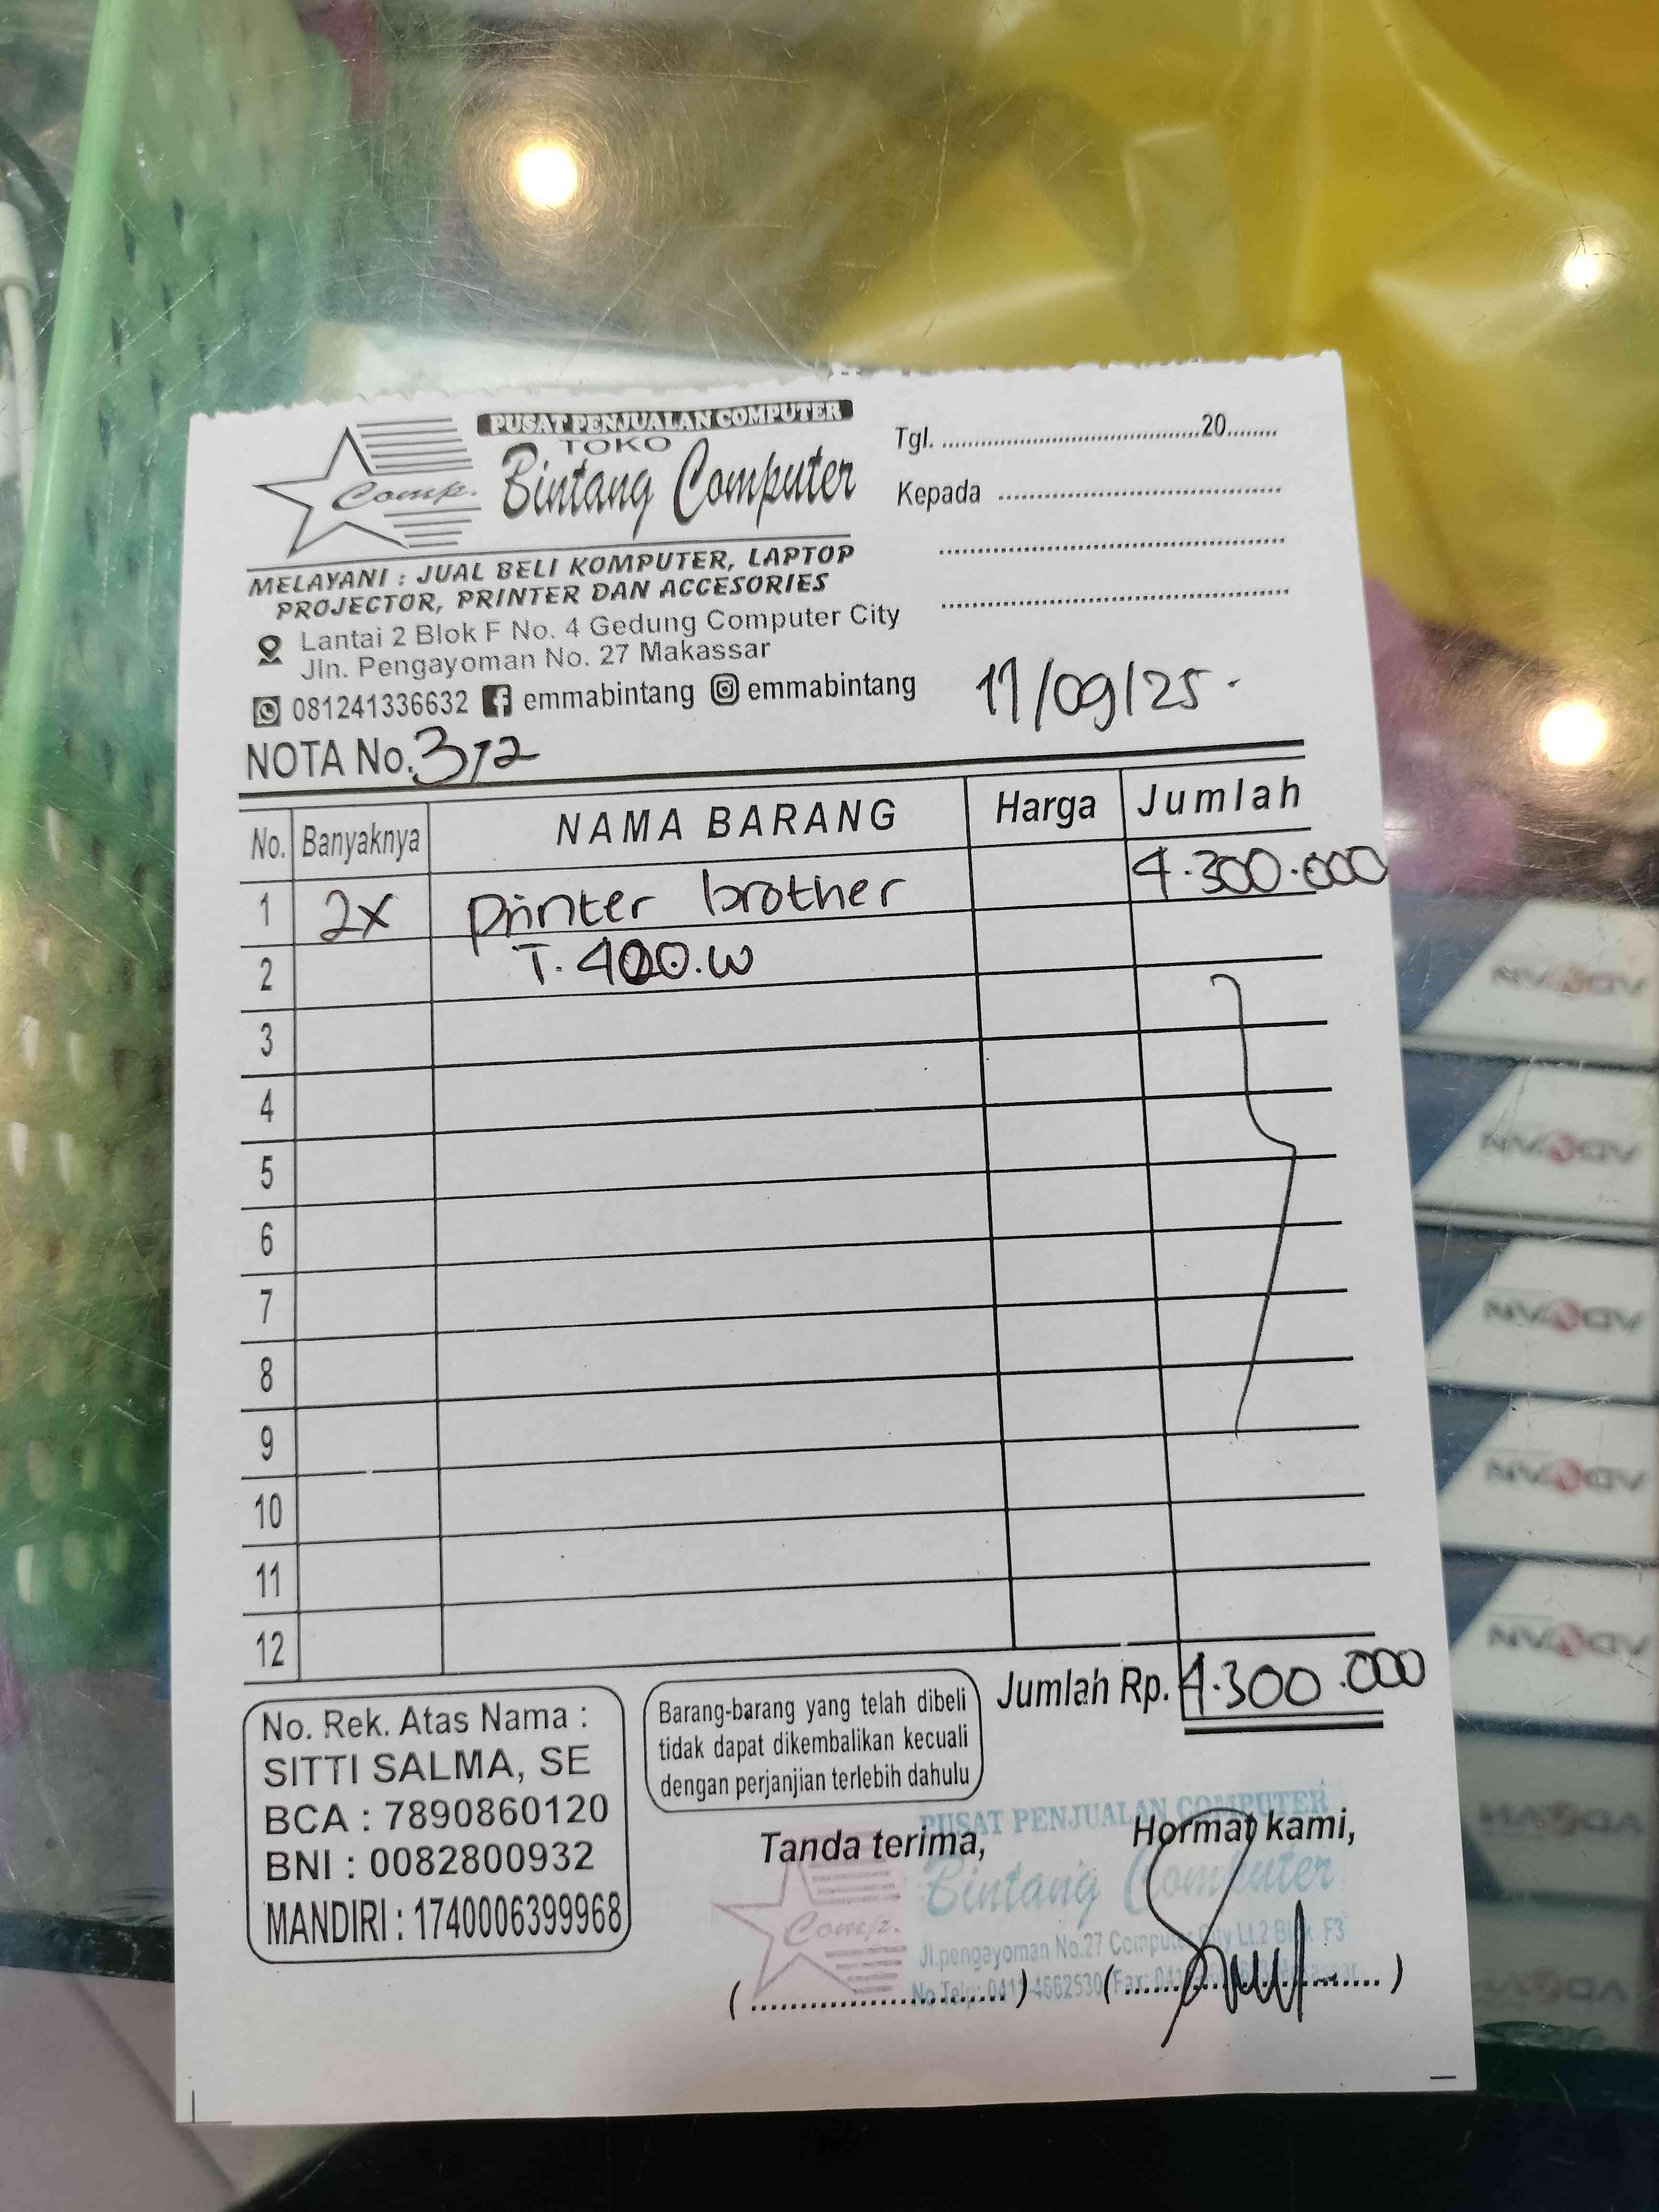 PUSAT PENJUALAN COMPUTER
TOKO
Bintang Computer
Comp.
MELAYANI : JUAL BELI KOMPUTER, LAPTOP
PROJECTOR, PRINTER DAN ACCESORIES
Lantai 2 Blok F No. 4 Gedung Computer City
Jln. Pengayoman No. 27 Makassar
081241336632 emmabintang emmabintang
Tgl. ........................................20........
Kepada ............................................
11/09/25.
NOTA No. 372
No. Banyaknya NAMA BARANG Harga Jumlah
1 2x Printer brother 4.300.000
2 T.420.W
3
4
5
6
7
8
9
10
11
12
Jumlah Rp. 4.300.000
No. Rek. Atas Nama :
SITTI SALMA, SE
BCA : 7890860120
BNI : 0082800932
MANDIRI : 1740006399968
Barang-barang yang telah dibeli
tidak dapat dikembalikan kecuali
dengan perjanjian terlebih dahulu
Tanda terima,
Hormat kami,
PUSAT PENJUALAN COMPUTER
Bintang Computer
Comp.
Jl.pengayoman No.27 Computer City Lt.2 Blok F3
No Telp: 0411-4662530 Fax:
ADVAN
ADVAN
ADVAN
ADVAN
ADVAN
ADVAN
ADVAN